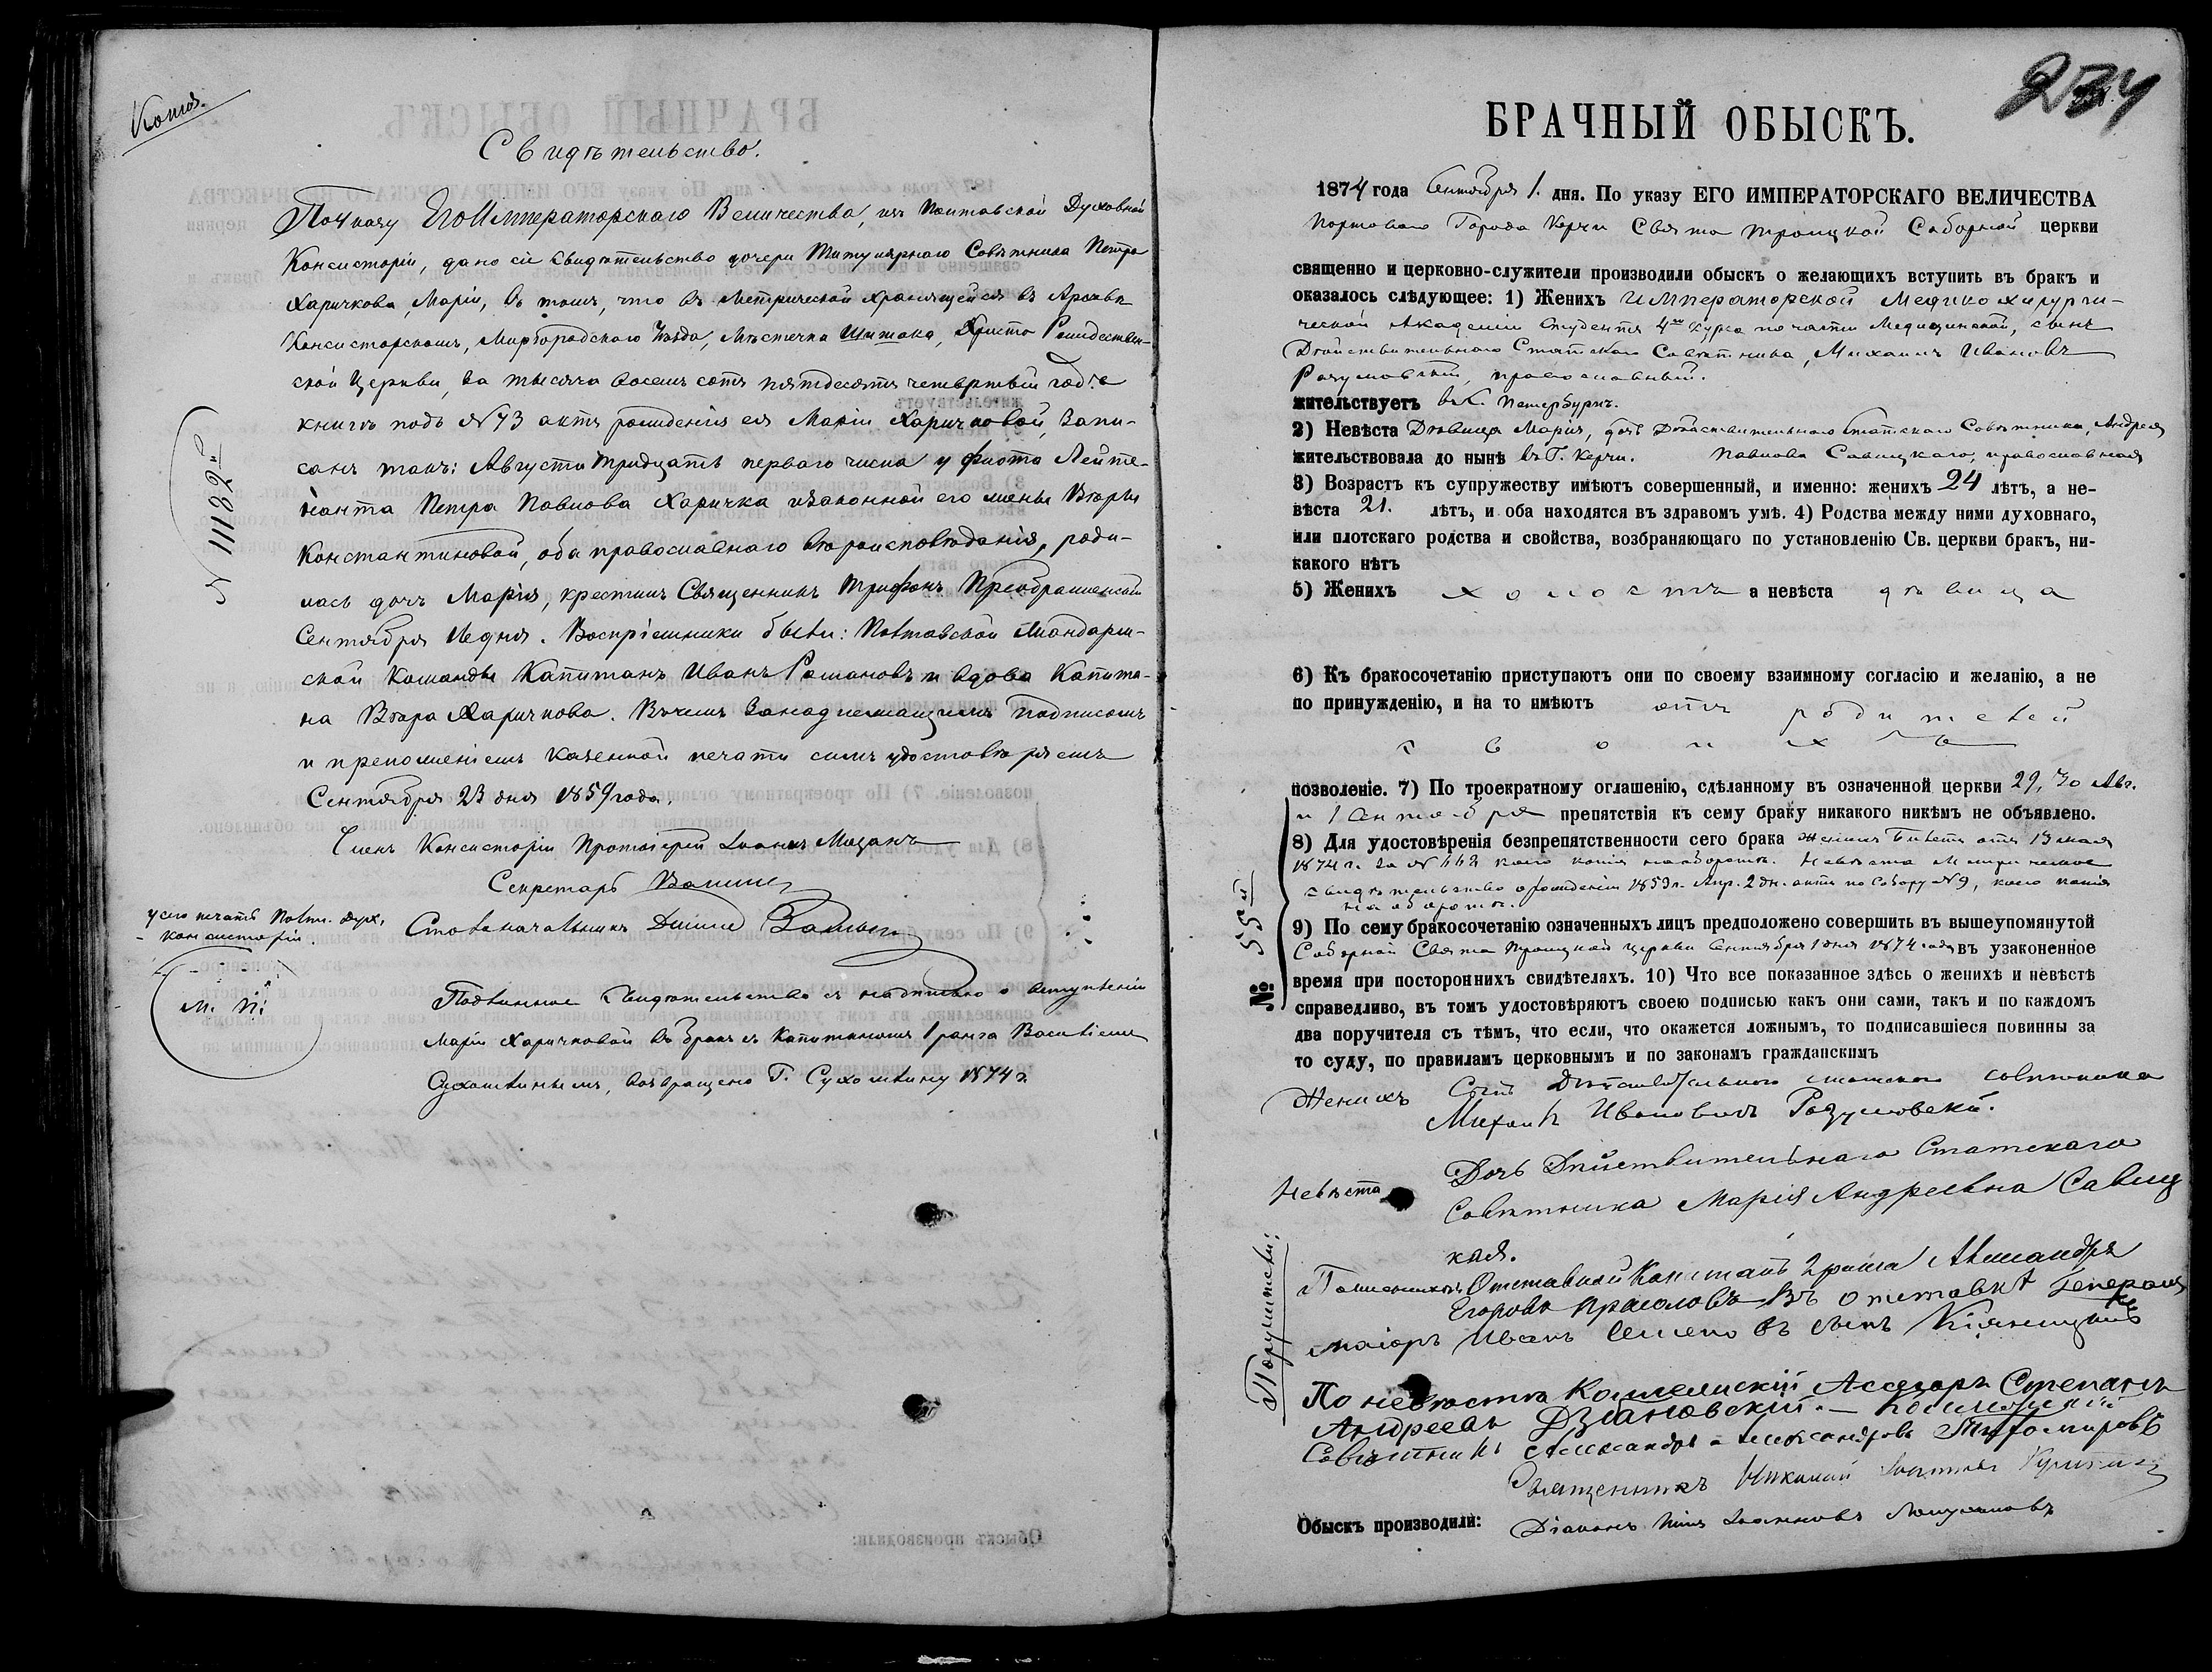 Копія.
Свидѣтельство.
По Указу Его Императорскаго Величества, изъ Полтавской Духовной
Консисторіи, дано сіе свидѣтельство дочери Титулярнаго Совѣтника Петра
Харичкова, Маріи, въ томъ, что въ метрической хранящейся въ Архивѣ
Консисторскомъ, Миргородскаго Уѣзда, Мѣстечка Шишака, Христо Рождествен-
ской Церкви, за тысяча восемь сотъ пятдесятъ четвертый годъ
книгѣ подъ №73 актъ рожденія ея Маріи Харичковой, запи-
санъ такъ: Августа тридцать перваго числа у флота Лейте-
нанта Петра Павлова Харичка изаконной его жены Вѣры
Константиновой, оба православнаго вѣроисповѣданія, роди-
лась дочь Марія, крестилъ Священникъ Трифонъ Преображенскій
Сентября дня. Воспріемники были: Полтавской Жандарм-
ской Команды Капитанъ Иванъ Романовъ и вдова Капита-
на Вѣра Харичкова. Въ чемъ занадлежащимъ подписомъ
и приложеніемъ казенной печати симъ удостовѣряемъ
Сентября 23 дня 1859 года.
Членъ Консисторіи Протоіерей Іоаннъ
Секретарь
Столоначальникъ
у сего печать Полт. Дух.
Консисторіи.
М. П.
№ 11182й
Подлинное свидѣтельство съ надписью о вступленіи
Маріи Харичковой въ бракъ съ Капитаномъ 1 ранга Василіемъ
Сухомлинымъ, возвращено Г. Сухомлину 1874 г.
234
БРАЧНЫЙ ОБЫСКЪ.
1874 года Сентября 1. дня. По указу ЕГО ИМПЕРАТОРСКАГО ВЕЛИЧЕСТВА
Портоваго Города Керчи Свято Троицкой Соборной церкви
священно и церковно-служители производили обыскъ о желающихъ вступить въ бракъ и
оказалось слѣдующее: 1) Женихъ Императорской Медико хирурги-
ческой Академіи Студентъ 4го Курса по части Медицинской, сынъ
Дѣйствительнаго Статскаго Совѣтника, Михаилъ Ивановъ
Разумовскій, православный.
жительствуетъ въ С. Петербургѣ.
2) Невѣста Дѣвица Марія, дочь Дѣйствительнаго Статскаго Совѣтника, Андрея
жительствовала до нынѣ въ Г. Керчи. Павлова Савицкаго, православная
3) Возрастъ къ супружеству имѣютъ совершенный, и именно: женихъ 24 лѣтъ, а не-
вѣста 21. лѣтъ, и оба находятся въ здравомъ умѣ. 4) Родства между ними духовнаго,
или плотскаго родства и свойства, возбраняющаго по установленію Св. церкви бракъ, ни-
какого нѣтъ
5) Женихъ холостъ а невѣста дѣвица
6) Къ бракосочетанію приступаютъ они по своему взаимному согласію и желанію, а не
по принужденію, и на то имѣютъ отъ родителей
своихъ
позволеніе. 7) По троекратному оглашенію, сдѣланному въ означенной церкви 29, 30 Авг.
и 1 Сентября препятствія къ сему браку никакого никѣмъ не объявлено.
8) Для удостовѣренія безпрепятственности сего брака жениха Билетъ отъ 13 мая
1874 г. за № 662 коего копія наоборотѣ. Невѣста Метрическое
свидѣтельство о рожденіи 1853 г. Апр. 2 дн. актъ по Собору №9, коего копія
на оборотѣ.
9) По сему бракосочетанію означенныхъ лицъ предположено совершить въ вышеупомянутой
Соборной Свято Троицкой церкви Сентября 1 дня 1874 года въ узаконенное
время при постороннихъ свидѣтеляхъ. 10) Что все показанное здѣсь о женихѣ и невѣстѣ
справедливо, въ томъ удостовѣряютъ своею подписью какъ они сами, такъ и по каждомъ
два поручителя съ тѣмъ, что если, что окажется ложнымъ, то подписавшіеся повинны за
то суду, по правиламъ церковнымъ и по законамъ гражданскимъ
№ 55й
Женихъ Сынъ Дѣйствительнаго статскаго совѣтника
Михаилъ Ивановичъ Разумовскій.
Невѣста Дочь Дѣйствительнаго Статскаго
Совѣтника Марія Андреевна Савиц
кая.
Поручители:
По женихѣ: Отставной Капитанъ 2 ранга Александръ
Егоровъ въ отставкѣ Генералъ
маіоръ Иванъ Семеновъ сынъ
По невѣстѣ Коллежскій Асесоръ Степанъ
Андреевъ Дзіановскій. — Коллежскій
Совѣтникъ Александръ Александровъ Тихомировъ
Священникъ Николай
Обыскъ производили: Діаконъ